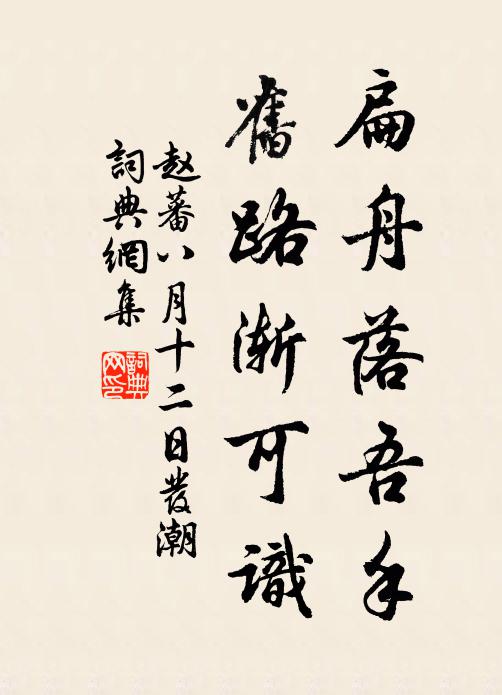 扁舟落吾手
舊路漸可識
赵蕃八月十二日發潮
詞典網集
詞典网印